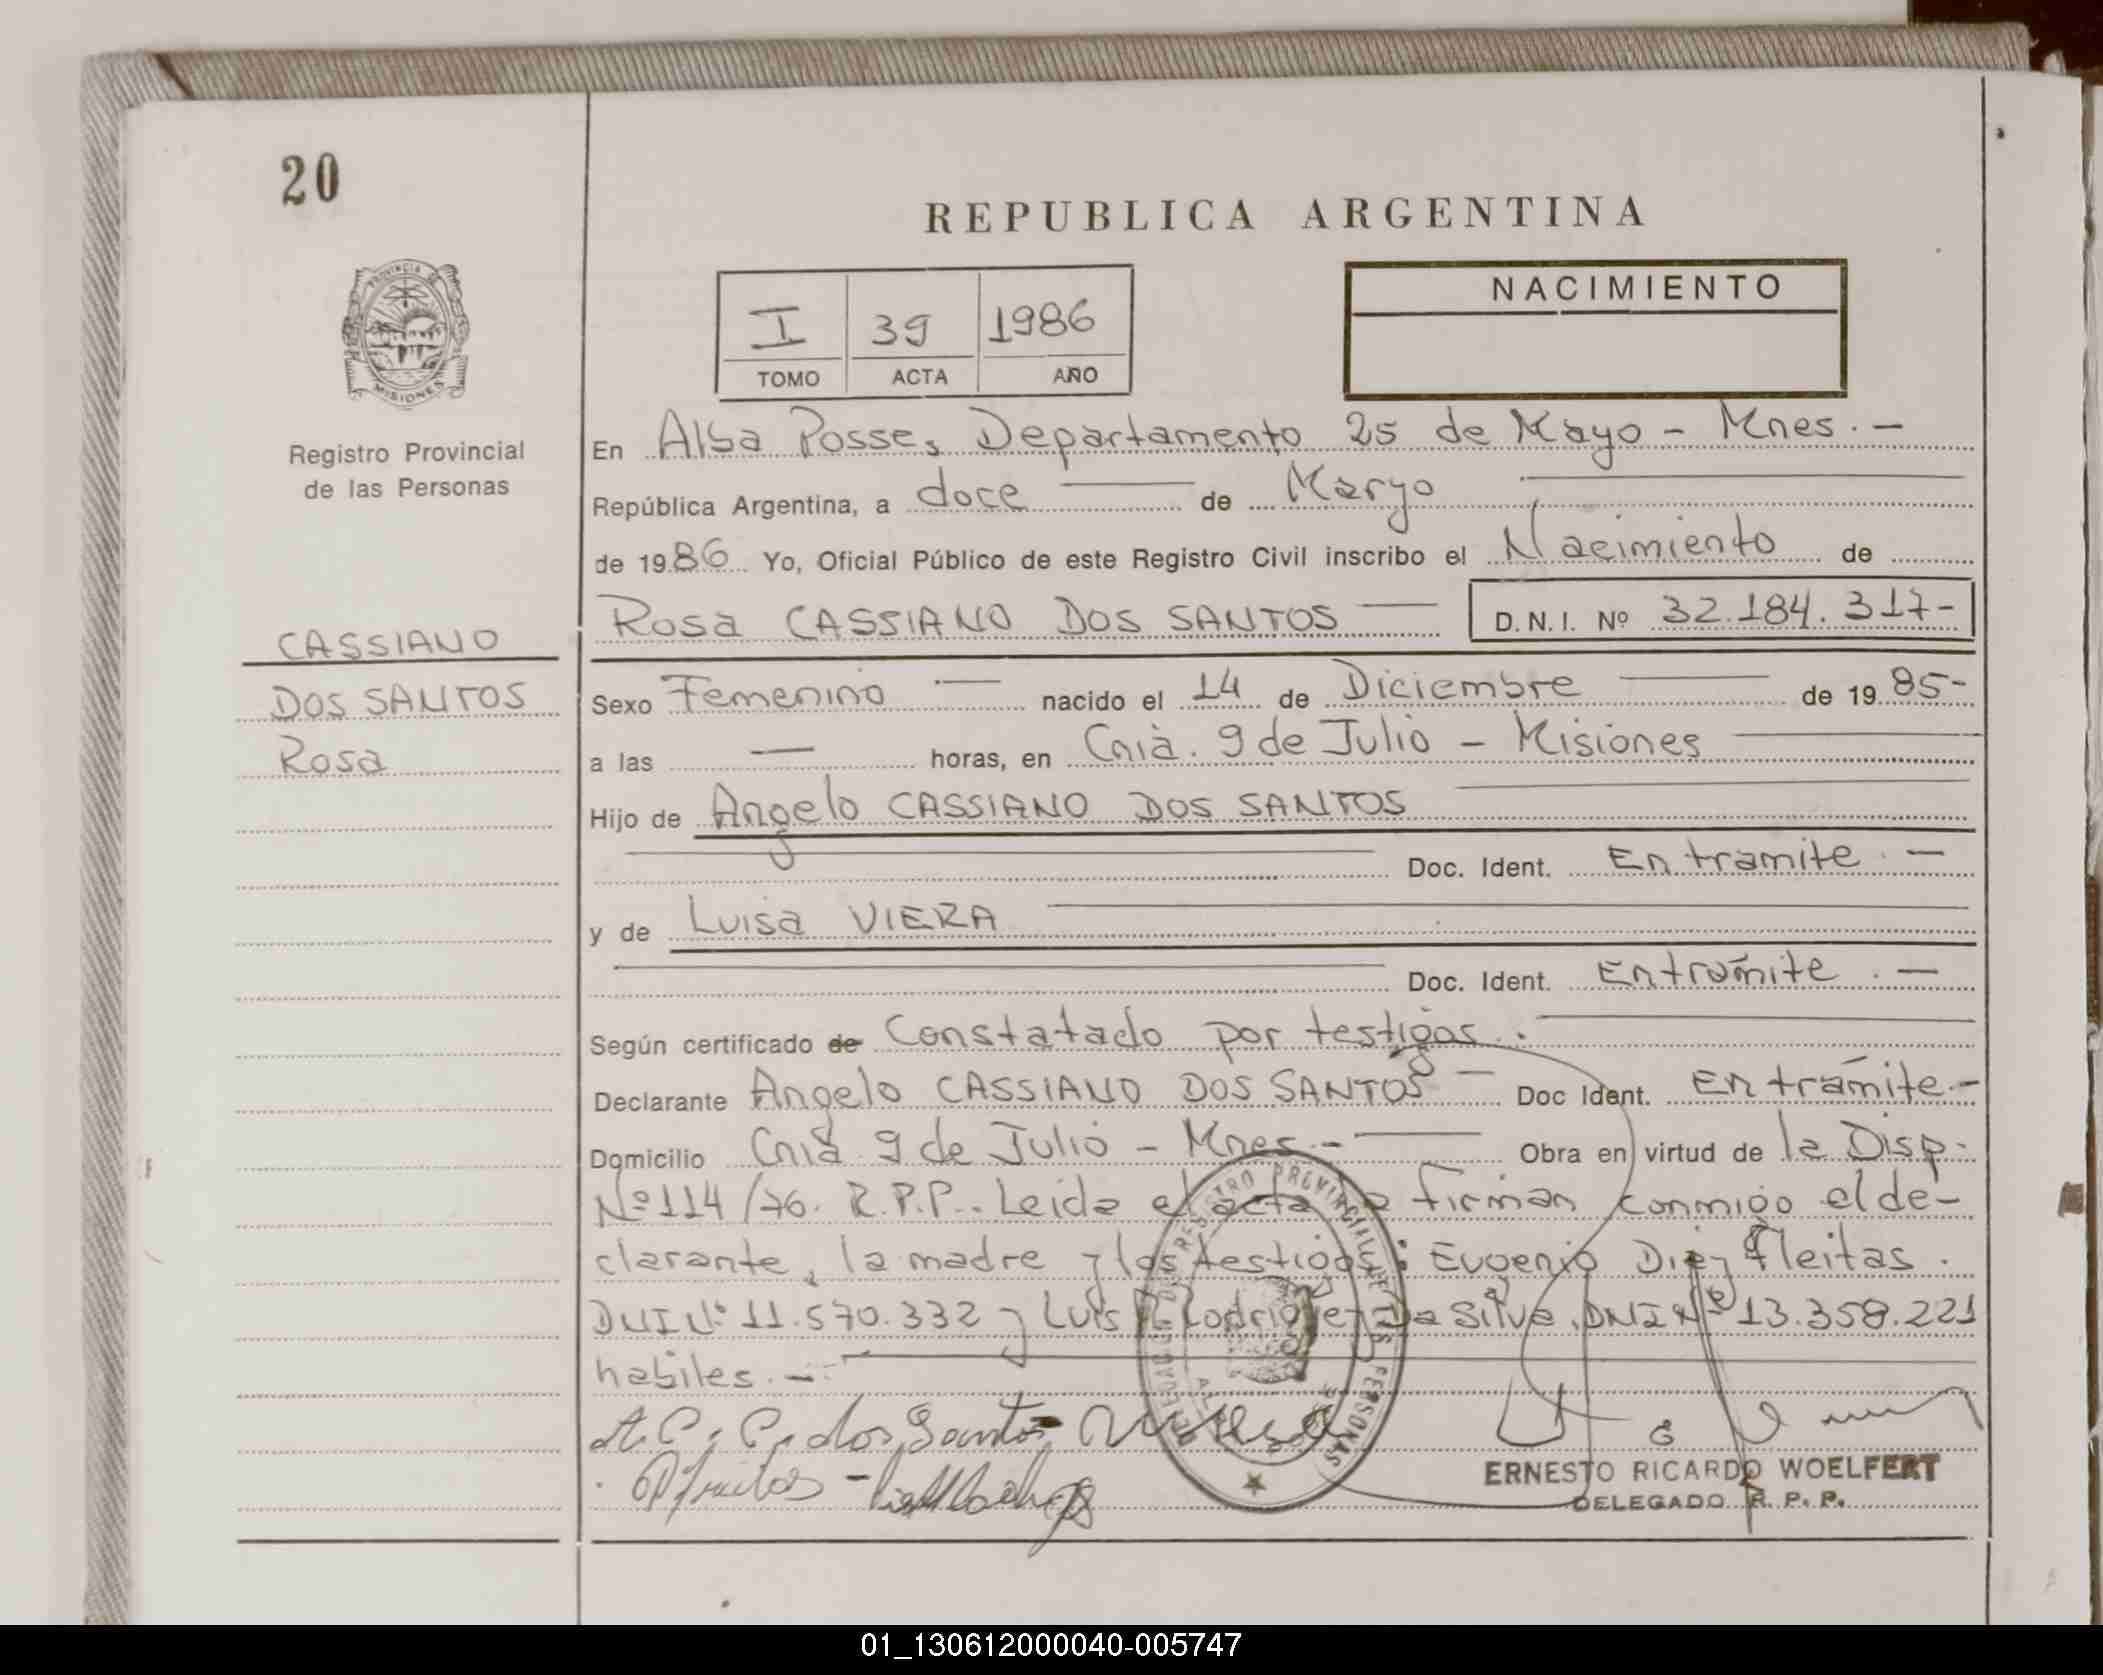 20
REPUBLICA ARGENTINA
PROVINCIA DE
MISIONES
Registro Provincial
de las Personas
I 39 1986
TOMO ACTA AÑO
NACIMIENTO
En Alba Posse, Departamento 25 de Mayo - Mnes. -
República Argentina, a doce de Marzo
de 1986 Yo, Oficial Público de este Registro Civil inscribo el Nacimiento de
Rosa CASSIANO DOS SANTOS D.N.I. Nº 32.184.317-
CASSIANO
DOS SANTOS
Rosa
Sexo Femenino nacido el 14 de Diciembre de 1985-
a las — horas, en Cnia. 9 de Julio - Misiones
Hijo de Angelo CASSIANO DOS SANTOS
Doc. Ident. En tramite. -
y de Luisa VIERA
Doc. Ident. En trámite. -
Según certificado de Constatado por testigos.
Declarante Angelo CASSIANO DOS SANTOS - Doc Ident. En trámite-
Domicilio Cnia 9 de Julio - Mnes.- Obra en virtud de la Disp.
Nº 114/76. R.P.P.. Leida el acta la firman conmigo el de-
clarante, la madre y los testigos: Eugenio Diez Fleitas.
DNI Nº 11.570.332 y Luis R. Rodriguez Da Silva, DNI Nº 13.358.221
habiles.-
A. C. C. dos Santos
ERNESTO RICARDO WOELFERT
DELEGADO R. P. P.
REGISTRO PROVINCIAL DE LAS PERSONAS
01_130612000040-005747